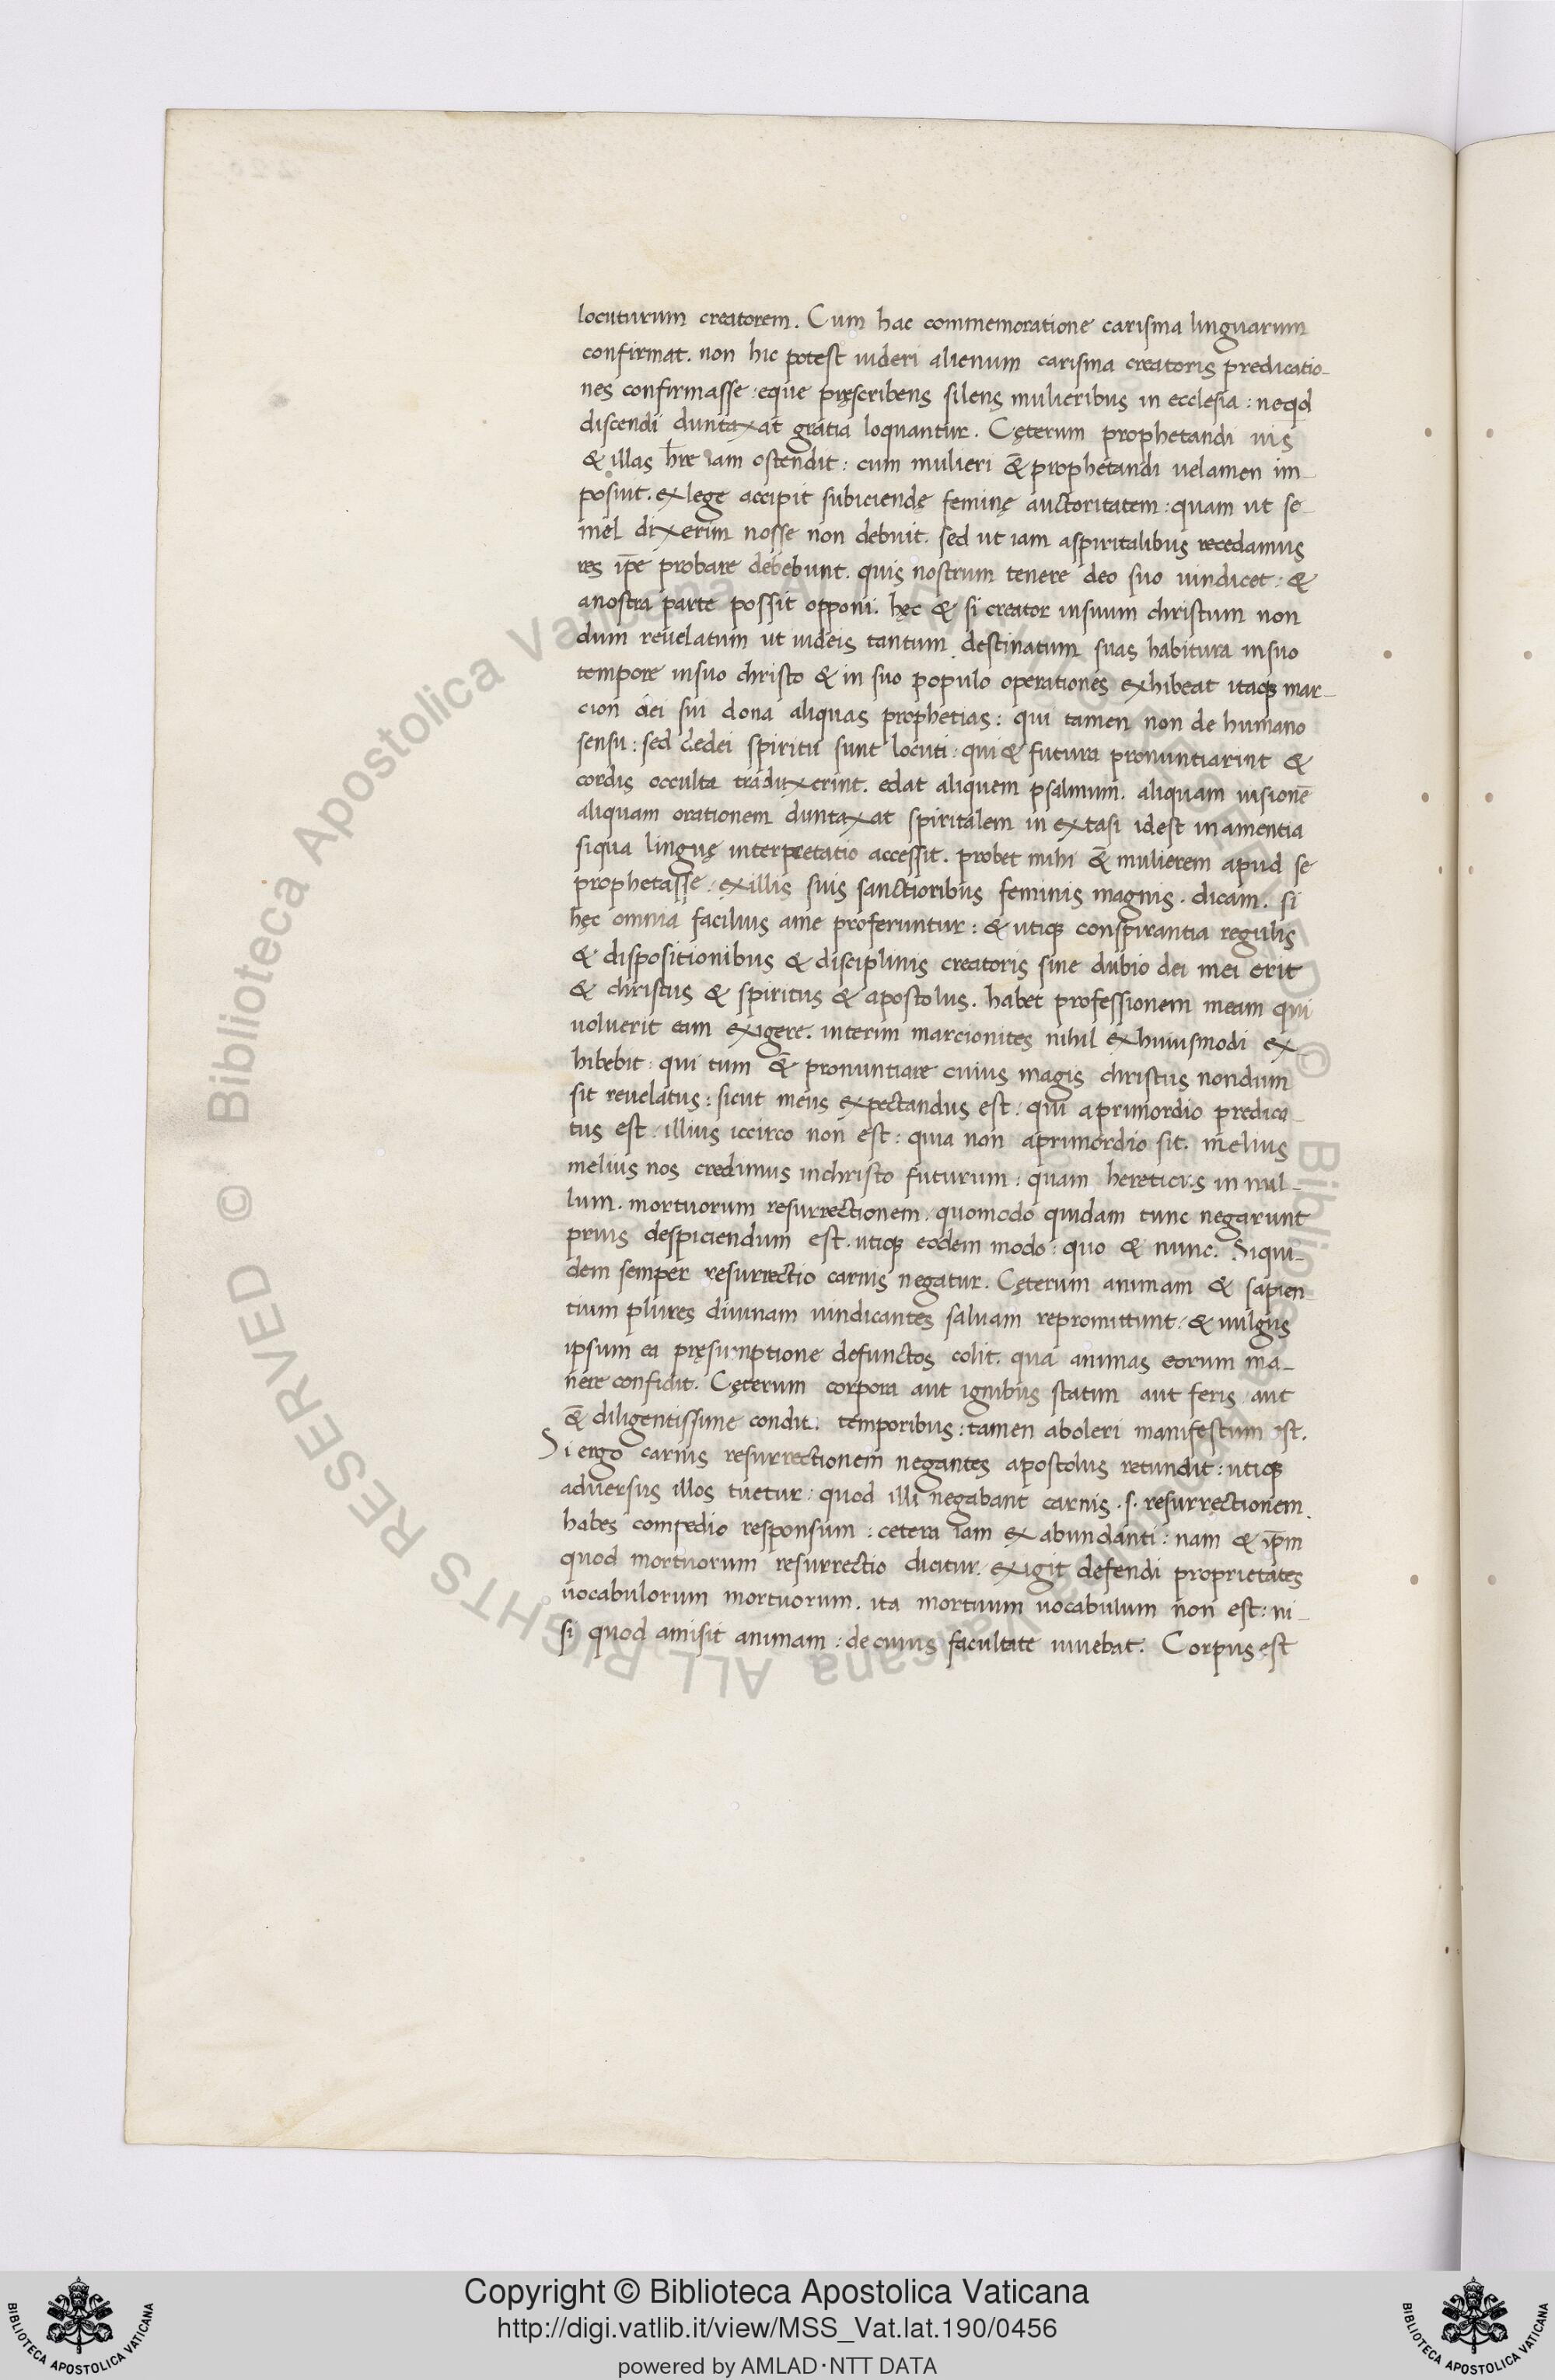 locuturum creatorem. Cum hac commemoratione carisma linguarum
confirmat. non hic potest uideri alienum carisma creatoris predicatio-
nes confirmasse: eque pręscribens silens mulieribus in ecclesia: neqd
discendi duntaxat gratia loquantur. Cęterum prophetandi uis
& illas hr̄e iam ostendit: cum mulieri &̄ prophetandi uelamen im-
posuit. ex lege accipit subiciendę feminę auctoritatem: quam ut se-
mel dixerim nosse non debuit. sed ut iam aspiritalibus recedamus
res ip̄e probare debebunt. quis nostrum temere deo suo uindicet: &
anostra parte possit opponi. hęc & si creator insuum christum non
dum reuelatum ut iudeis tantum destinatum suas habitura insuo
tempore insuo christo & in suo populo operationes exhibeat itaq; mar-
cion dei sui dona aliquas prophetias: qui tamen non de humano
sensu: sed dedei spiritu sunt locuti: qui & futura pronuntiarint &
cordis occulta traduxerint. edat aliquem psalmum. aliquam uisionē
aliquam orationem duntaxat spiritalem in extasi idest inamentia
siqua linguę interpretatio accessit. probet mihi &̄ mulierem apud se
prophetasse: exillis suis sanctioribus feminis magnis. dicam. si
hęc omnia facilius ame proferuntur: & utiq; conspirantia regulis
& dispositionibus & disciplinis creatoris sine dubio dei mei erit
& christus & spiritus & apostolus. habet professionem meam qui
uoluerit eam exigere. interim marcionites nihil exhuiusmodi ex-
hibebit: qui tum &̄ pronuntiare cuius magis christus nondum
sit reuelatus: sicut meus expectandus est: qui aprimordio predica-
tus est: illius iccirco non est: quia non aprimordio sit. melius
melius nos credimus inchristo futurum: quam hereticis in nul-
lum. mortuorum resurrectionem. quomodo quidam tunc negarunt
prius despiciendum est. utiq; eodem modo: quo & nunc. Siqui-
dem semper resurrectio carnis negatur. Cęterum animam & sapien-
tium plures diuinam uindicantes saluam repromittunt: & uulgus
ipsum ea pręsumptione defunctos colit. qua animas eorum ma-
nere confidit. Cęterum corpora aut ignibus statim aut feris aut
&̄ diligentissime condit. temporibus: tamen aboleri manifestum est.
Si ergo carnis resurrectionem negantes apostolus retundit: utiq;
aduersus illos tuetur: quod illi negabant carnis .s. resurrectionem.
habes compedio responsum: cetera iam ex abundanti: nam & ip̄m
quod mortuorum resurrectio dicitur. exigit defendi proprietates
uocabulorum mortuorum. ita mortuum uocabulum non est: ni-
si quod amisit animam: de cuius facultate uiuebat. Corpus est
Copyright © Biblioteca Apostolica Vaticana
http://digi.vatlib.it/view/MSS_Vat.lat.190/0456
powered by AMLAD·NTT DATA